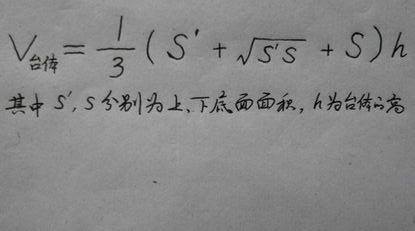 V台体 = 1/3 (S' + √S'S + S) h
其中 S', S 分别为上、下底面面积, h 为台体的高